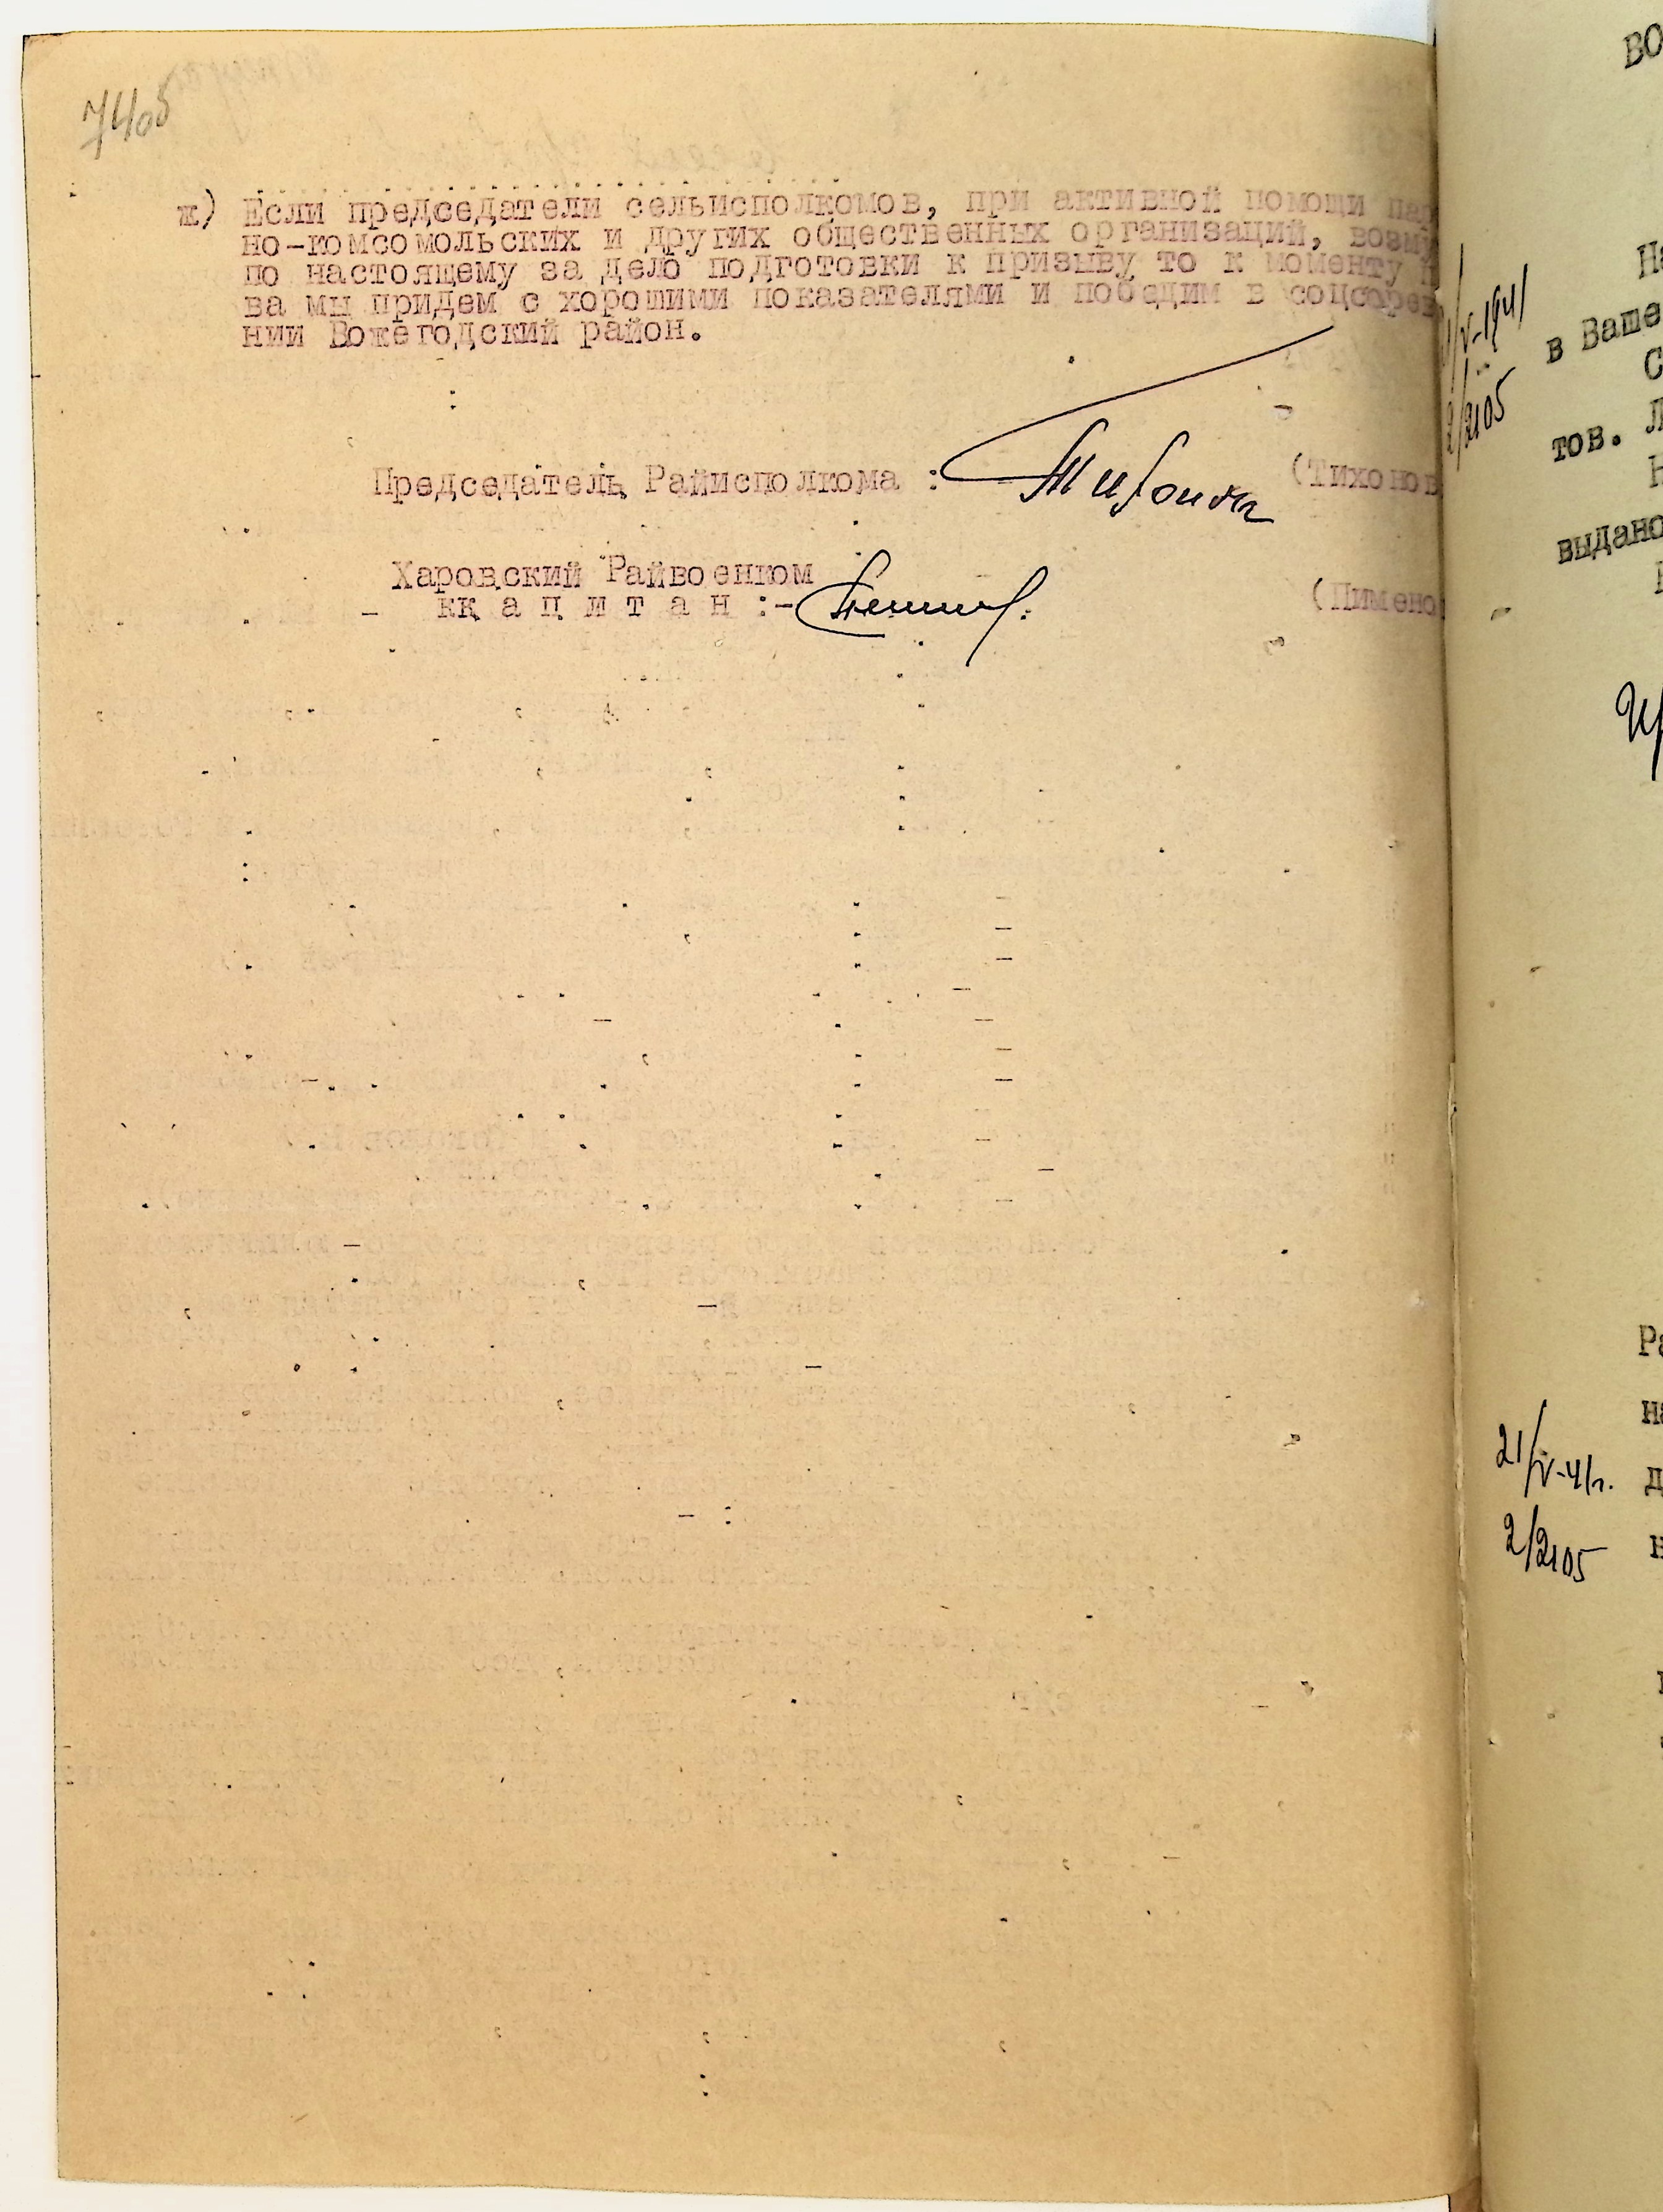 74об
ж) Если председатели сельисполкомов, при активной помощи пар
но-комсомольских и других общественных организаций, возьму
по настоящему за дело подготовки к призыву то к моменту п
ва мы придем с хорошими показателями и победим в соцсорев
нии Вожегодский район.
Председатель Райисполкома :
(Тихонов
Харовский Райвоенком
- кк а п и т а н :-
(Пимено
ВО
На
/V-1941
в Ваше
С
2/2105
тов. Л
Н
выдано
Ра
на
21/V-41г.
2/2105